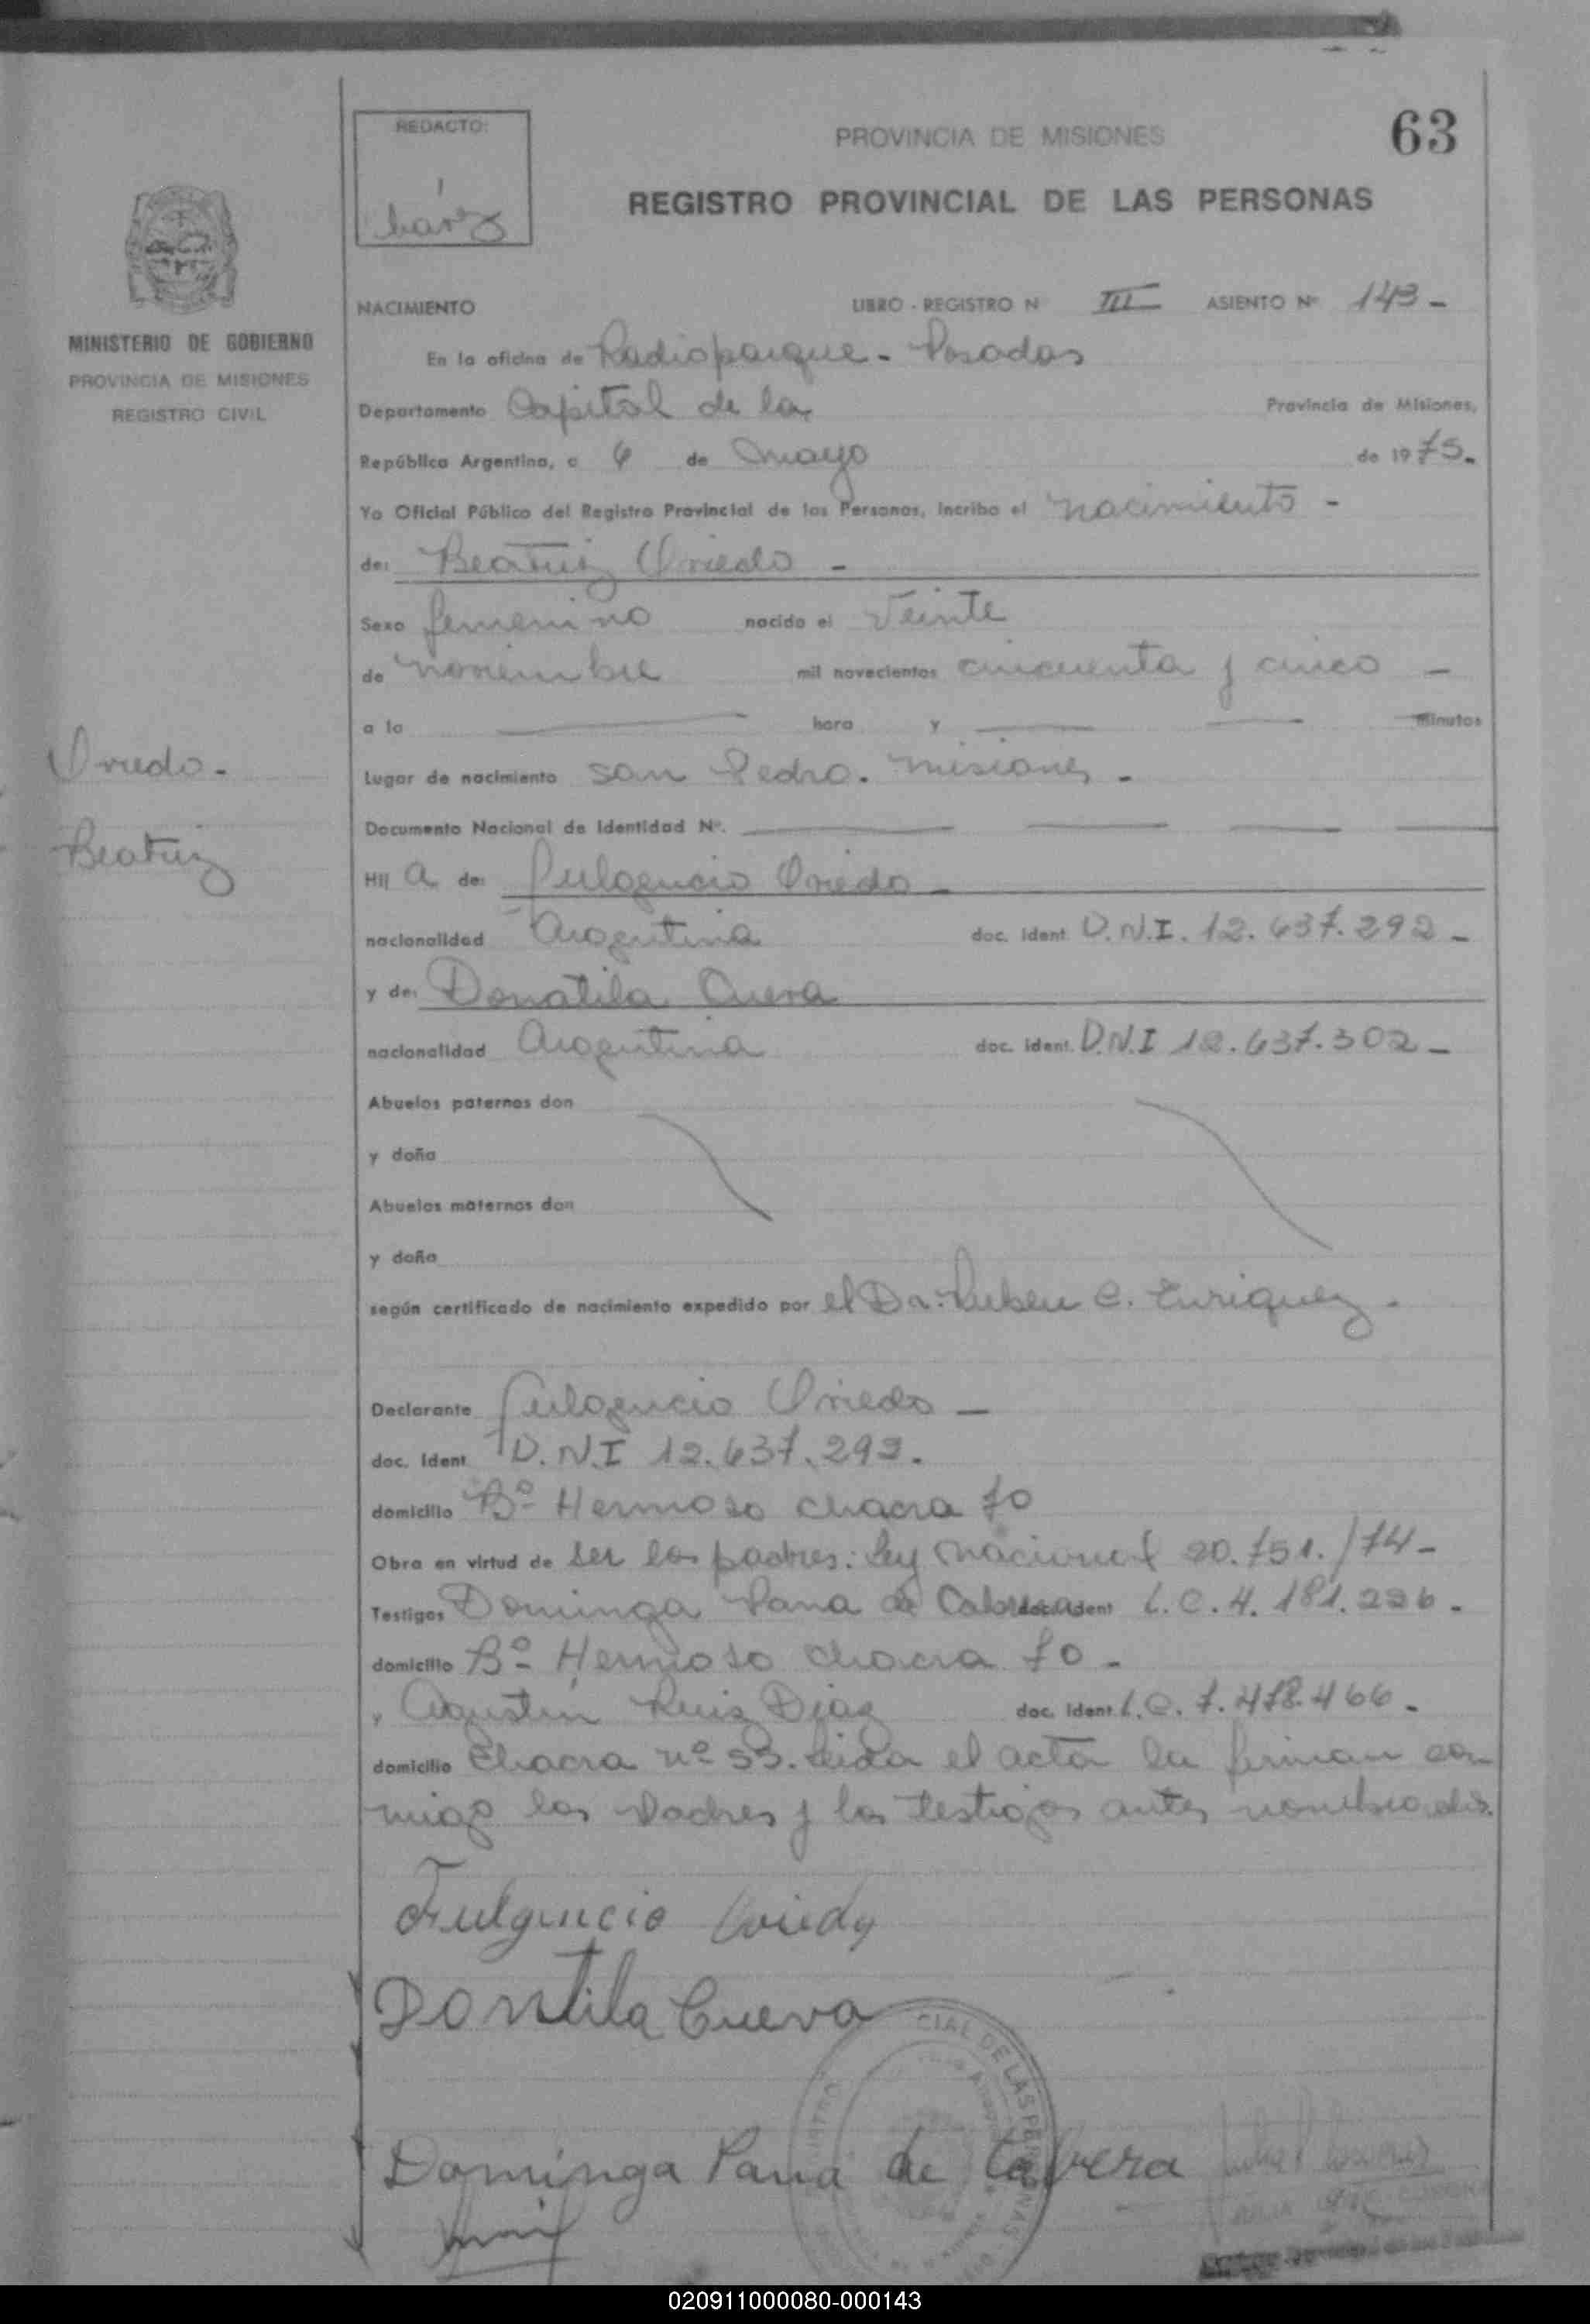 63
REDACTO:
PROVINCIA DE MISIONES
REGISTRO PROVINCIAL DE LAS PERSONAS
MINISTERIO DE GOBIERNO
PROVINCIA DE MISIONES
REGISTRO CIVIL
NACIMIENTO LIBRO - REGISTRO N III ASIENTO Nº 143 -
En la oficina de Radioparque - Posadas
Departamento Capital de la Provincia de Misiones,
República Argentina, a 6 de mayo de 1975.
Yo Oficial Público del Registro Provincial de las Personas, incribo el nacimiento -
de: Beatriz Oviedo -
Sexo femenino nacido el Veinte
de noviembre mil novecientos cincuenta y cinco -
a la hora y Minutos
Oviedo -
Beatriz
Lugar de nacimiento San Pedro. Misiones -
Documento Nacional de Identidad Nº.
Hij a de: Fulgencio Oviedo -
nacionalidad Argentina doc. ident. D.N.I. 12.637.292 -
y de: Donatila Cueva
nacionalidad Argentina doc. ident. D.N.I 12.637.302 -
Abuelos paternos don
y doña
Abuelos maternos don
y doña
según certificado de nacimiento expedido por el Dr. Ruben C. Enriquez -
Declarante Fulgencio Oviedo -
doc. Ident D.N.I 12.637.292.
domicilio Bº Hermoso chacra 70
Obra en virtud de ser los padres: Ley Nacional 20.751./74 -
Testigos Dominga Pana de Cabrera doc. ident L.C. 4.181.226 -
domicilio Bº Hermoso chacra 70 -
y Agustín Ruiz Diaz doc. ident L.E. 7.478.466 -
domicilio Chacra nº 53. Leida el acta la firman con-
migo los Padres y los testigos antes nombrados.
Fulgencio Oviedo
Dontila Cueva
CIAL DE LAS PERSONAS
Dominga Pana de Cabrera
020911000080-000143